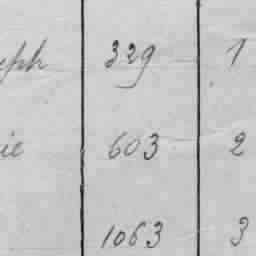 eph 329 1
ie 603 2
1063 3